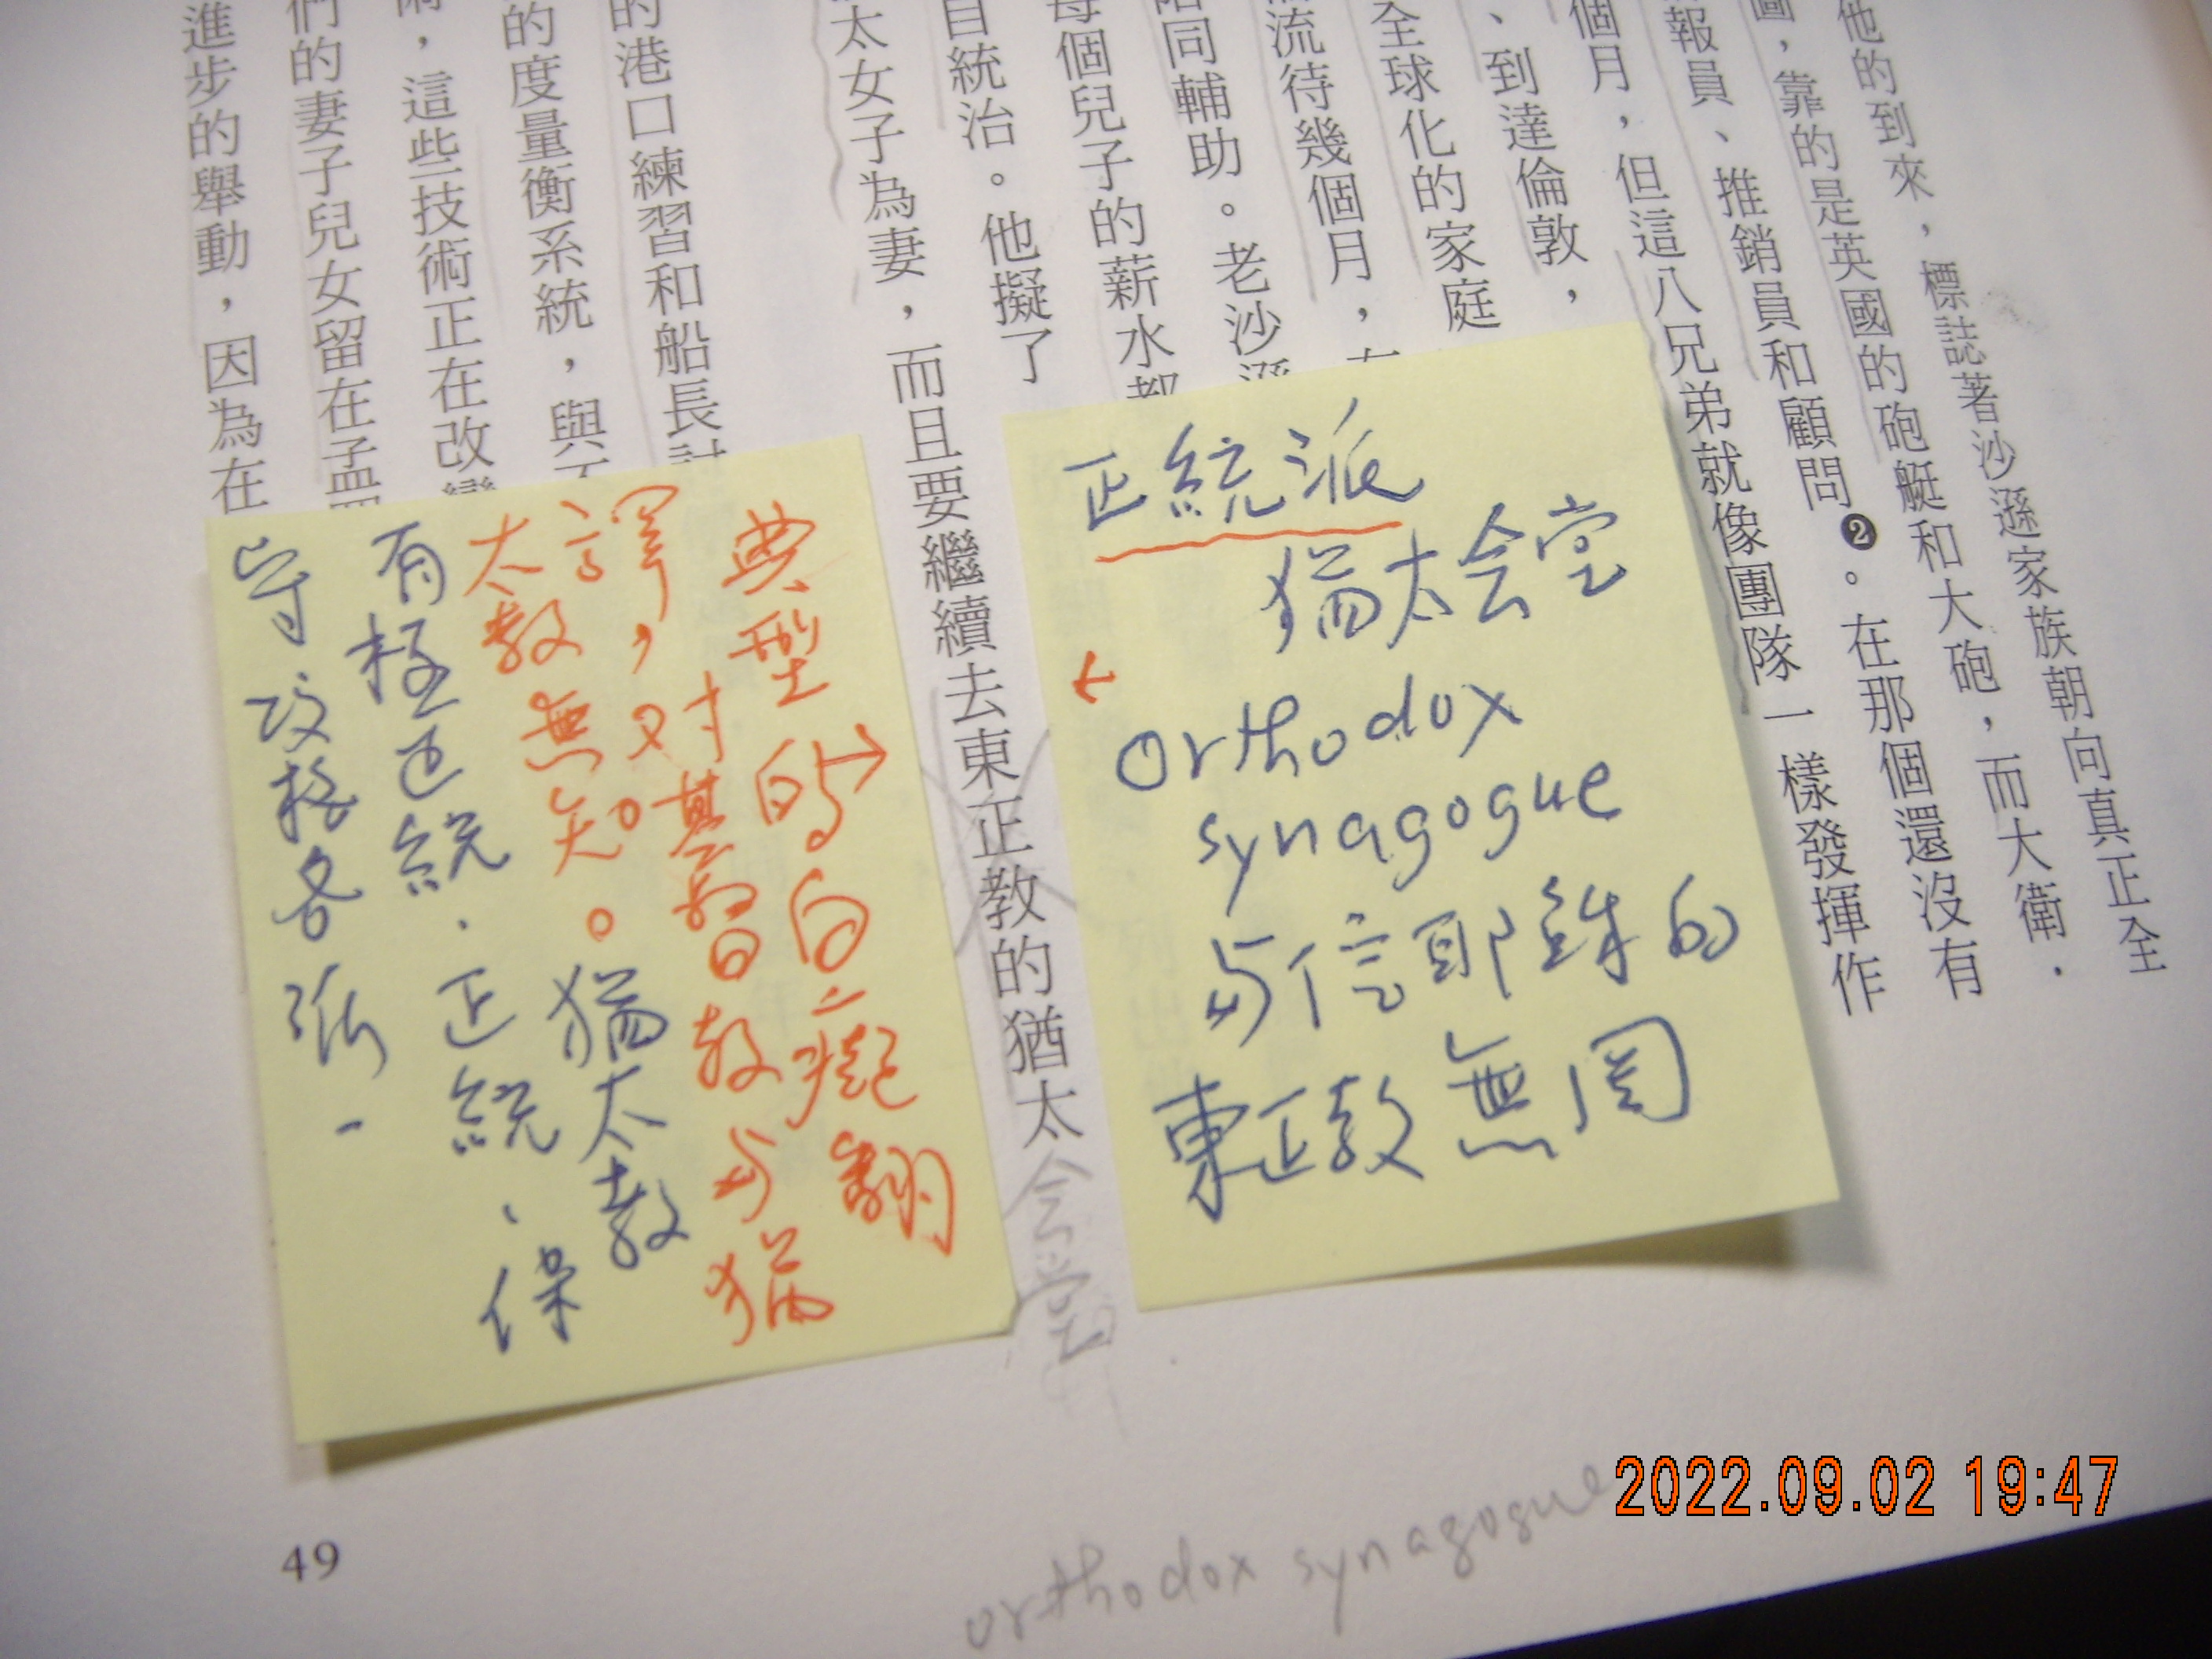 他的到來，標誌著沙遜家族朝向真正全
圖，靠的是英國的砲艇和大砲，而大衛．
報員、推銷員和顧問❷。在那個還沒有
個月，但這八兄弟就像團隊一樣發揮作
、到達倫敦，
全球化的家庭
流待幾個月，
同輔助。老沙遜
每個兒子的薪水都
自統治。他擬了
太女子為妻，而且要繼續去東正教的猶太
会堂
的港口練習和船長討
的度量衡系統，與
，這些技術正在改變
們的妻子兒女留在孟買
進步的舉動，因為在
正統派
猶太会堂
←
orthodox
synagogue
与信耶穌的
東正教無関
典型的→白痴翻
譯，对基督教与猶
太教無知。猶太教
有極正統．正統、保
守
改格各派．
49
orthodox synagogue
2022.09.02 19:47